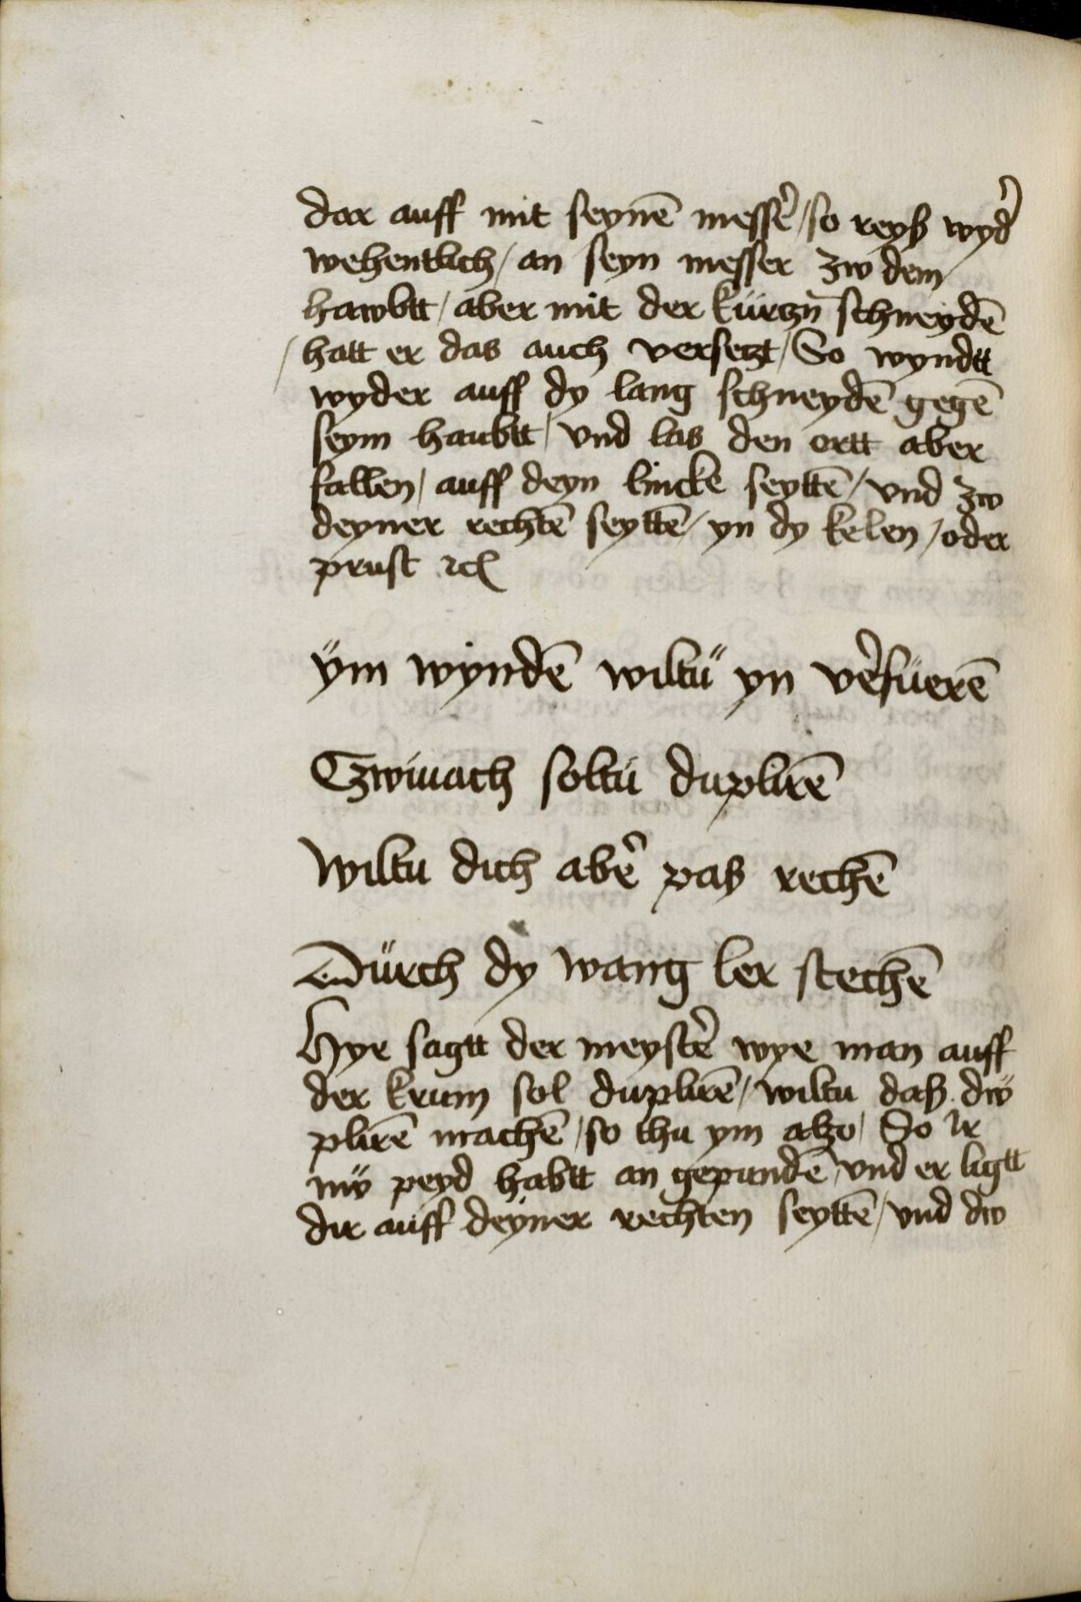 dar auff mit seynē messē᷑ / so reyß wyd᷑
wehentlich / an seyn messer zw dem
hawbtt / aber mit der kürtzn̄ schneydē
/ hatt er das auch versetzt / So wyndtt
wyder auff dy lang schneydē gegē
seym haubtt / vnd las den ortt aber
fallen / auff deyn lincke seyttē / vnd zw
deyner rechtē seyttē / yn dy kelen / oder
prust ⁊cꝭ
ÿm wÿndē wiltu᷑ yn ve᷑füerē
Tzwiuach soltu duplirē
Wiltu dich abe᷑ paß rechē
Dürch dy wang ler stechē
Hye sagtt der meyste᷑ wye man auff
der krum sol duplirē / wiltu daß dẅ
plirē machē / so thu ym alzo / So ir
nẅ peyd habtt an gepundē / vnd er ligtt
dir auff deyner rechten seyttē / vnd dw